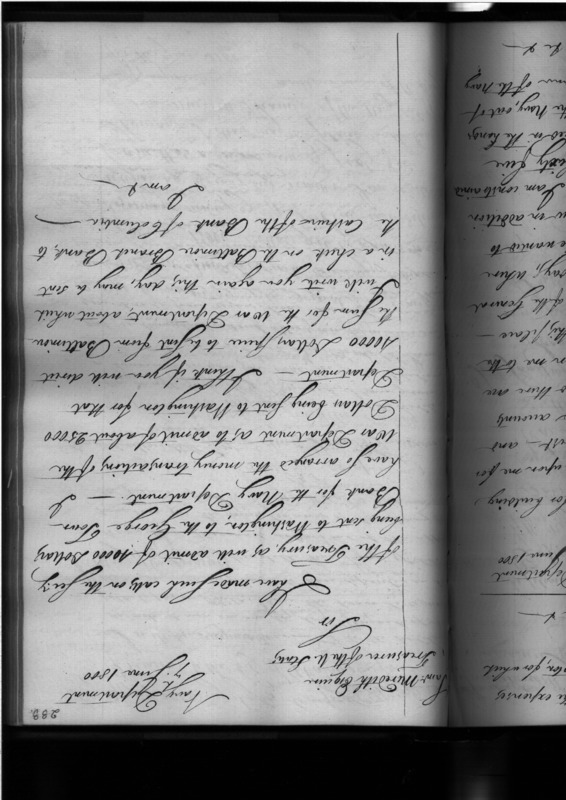 233
Navy Department
7th June 1800
Saml Meredith Esquire
Treasurer of the U States
Sir
I have made such calls on the Secy
of the Treasury, as will admit of 10000 Dollars
being sent to Washington, to the George Town
Bank for the Navy Department. — I
have so arranged the money transactions of the
War Department as to admit of about 25000
Dollars being sent to Washington for that
Department — I think if you will direct
10000 Dollars from hence to be sent from Baltimore
the sum for the War Department, about which
I will write you again this day, may be sent
in a check on the Baltimore Branch Bank, to
the Cashier of the Bank of Columbia —
I am &
the expenses
for which
&
Department
June 1800
for building
upon me for
and
amounts
there are
me to the
this place —
of the General
where
wanted to
in addition
I am constrained
Sixty five
in the hands
the Navy, out of
of the Navy
&